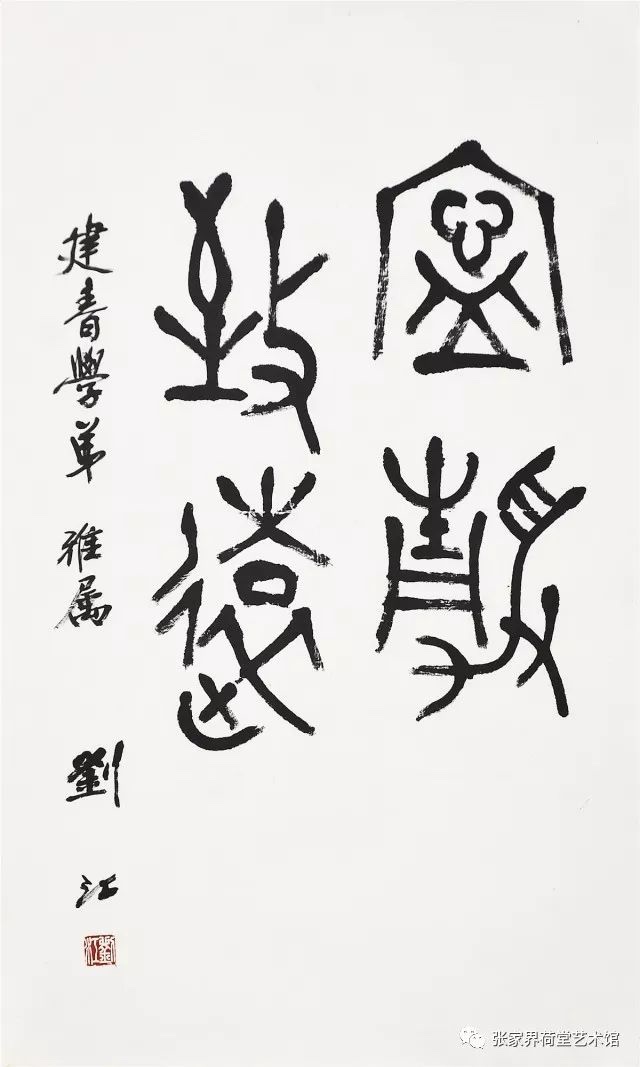 寧靜
致遠
建春學弟 雅属 劉江
劉江
张家界荷堂艺术馆